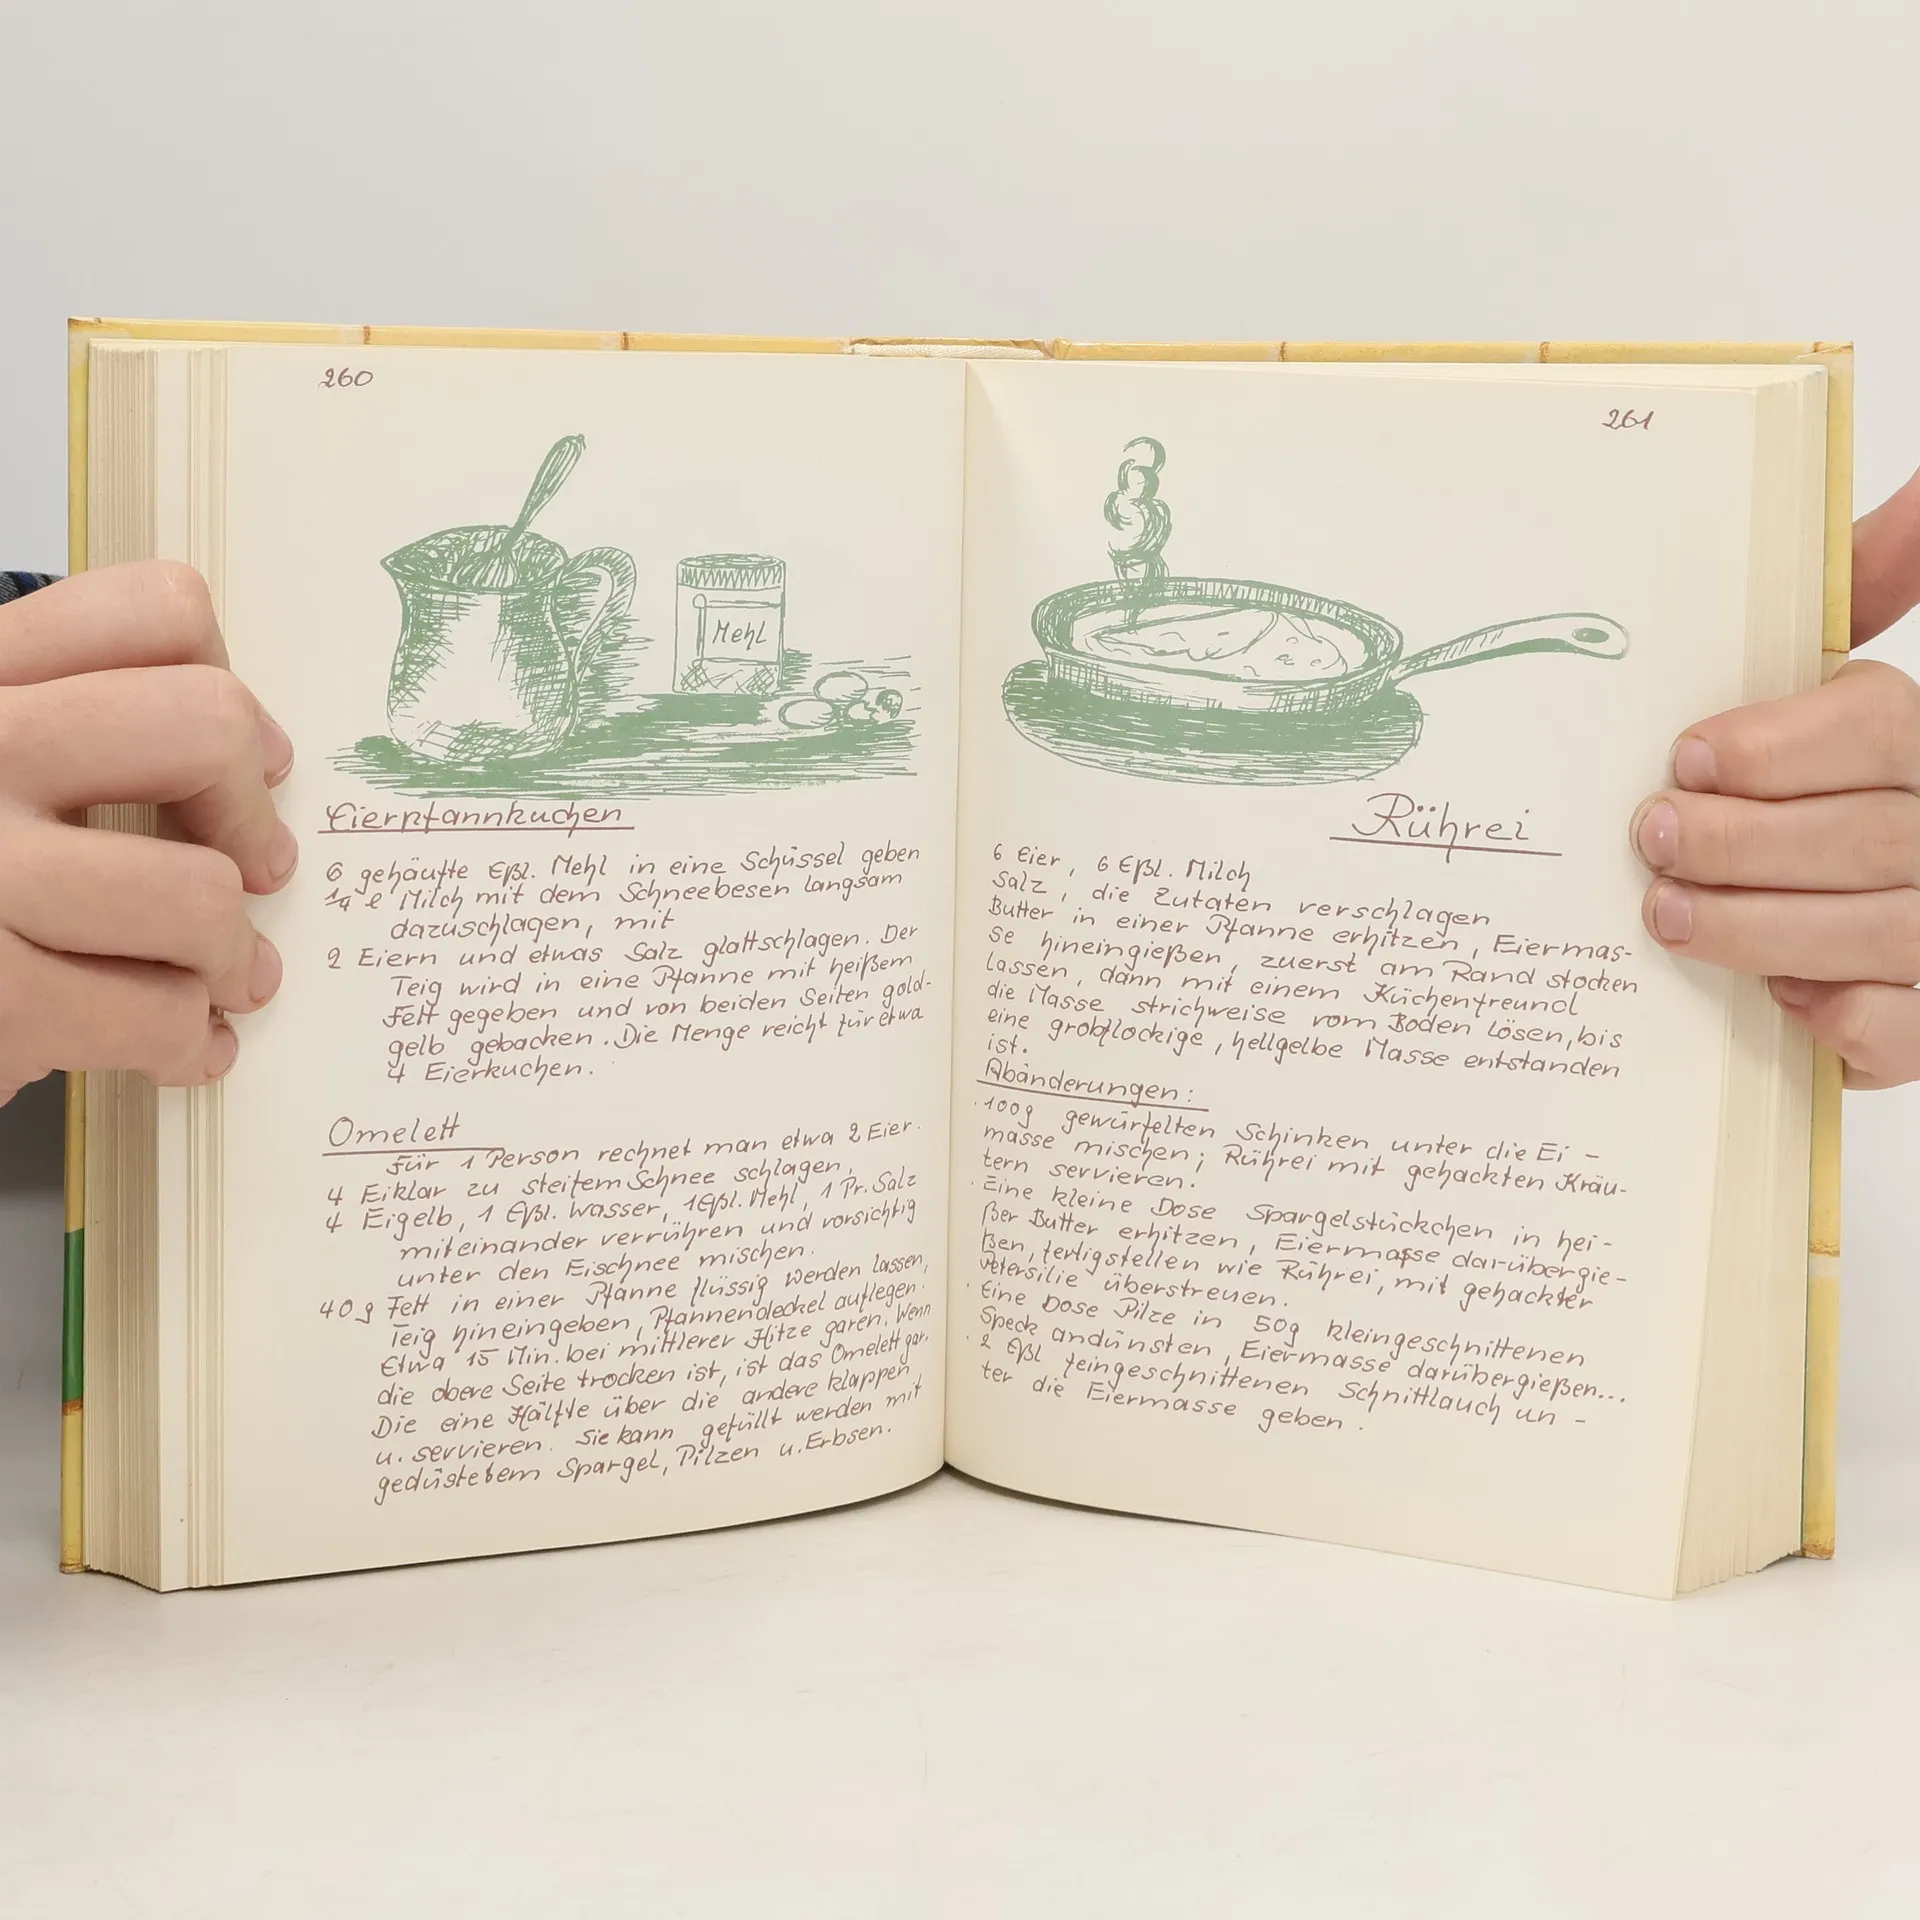 260
Mehl
Eierpfannkuchen
6 gehäufte Eßl. Mehl in eine Schüssel geben
1/4 l Milch mit dem Schneebesen langsam
dazuschlagen, mit
2 Eiern und etwas Salz glattschlagen. Der
Teig wird in eine Pfanne mit heißem
Fett gegeben und von beiden Seiten gold-
gelb gebacken. Die Menge reicht für etwa
4 Eierkuchen.
Omelett
Für 1 Person rechnet man etwa 2 Eier.
4 Eiklar zu steifem Schnee schlagen,
4 Eigelb, 1 Eßl. Wasser, 1 Eßl. Mehl, 1 Pr. Salz
miteinander verrühren und vorsichtig
unter den Eischnee mischen.
40 g Fett in einer Pfanne flüssig werden lassen,
Teig hineingeben, Pfannendeckel auflegen.
Etwa 15 Min. bei mittlerer Hitze garen. Wenn
die obere Seite trocken ist, ist das Omelett gar.
Die eine Hälfte über die andere klappen
u. servieren. Sie kann gefüllt werden mit
gedüstetem Spargel, Pilzen u. Erbsen.
261
Rührei
6 Eier, 6 Eßl. Milch
Salz, die Zutaten verschlagen
Butter in einer Pfanne erhitzen, Eiermas-
se hineingießen, zuerst am Rand stocken
lassen, dann mit einem Küchenfreund
die Masse strichweise vom Boden lösen, bis
eine grobflockige, hellgelbe Masse entstanden
ist.
Abänderungen:
· 100g gewürfelten Schinken unter die Ei-
masse mischen; Rührei mit gehackten Kräu-
tern servieren.
· Eine kleine Dose Spargelstückchen in hei-
ßer Butter erhitzen, Eiermasse darübergie-
ßen, fertigstellen wie Rührei, mit gehackter
Petersilie überstreuen.
· Eine Dose Pilze in 50g kleingeschnittenen
Speck andünsten, Eiermasse darübergießen...
· 2 Eßl feingeschnittenen Schnittlauch un-
ter die Eiermasse geben.